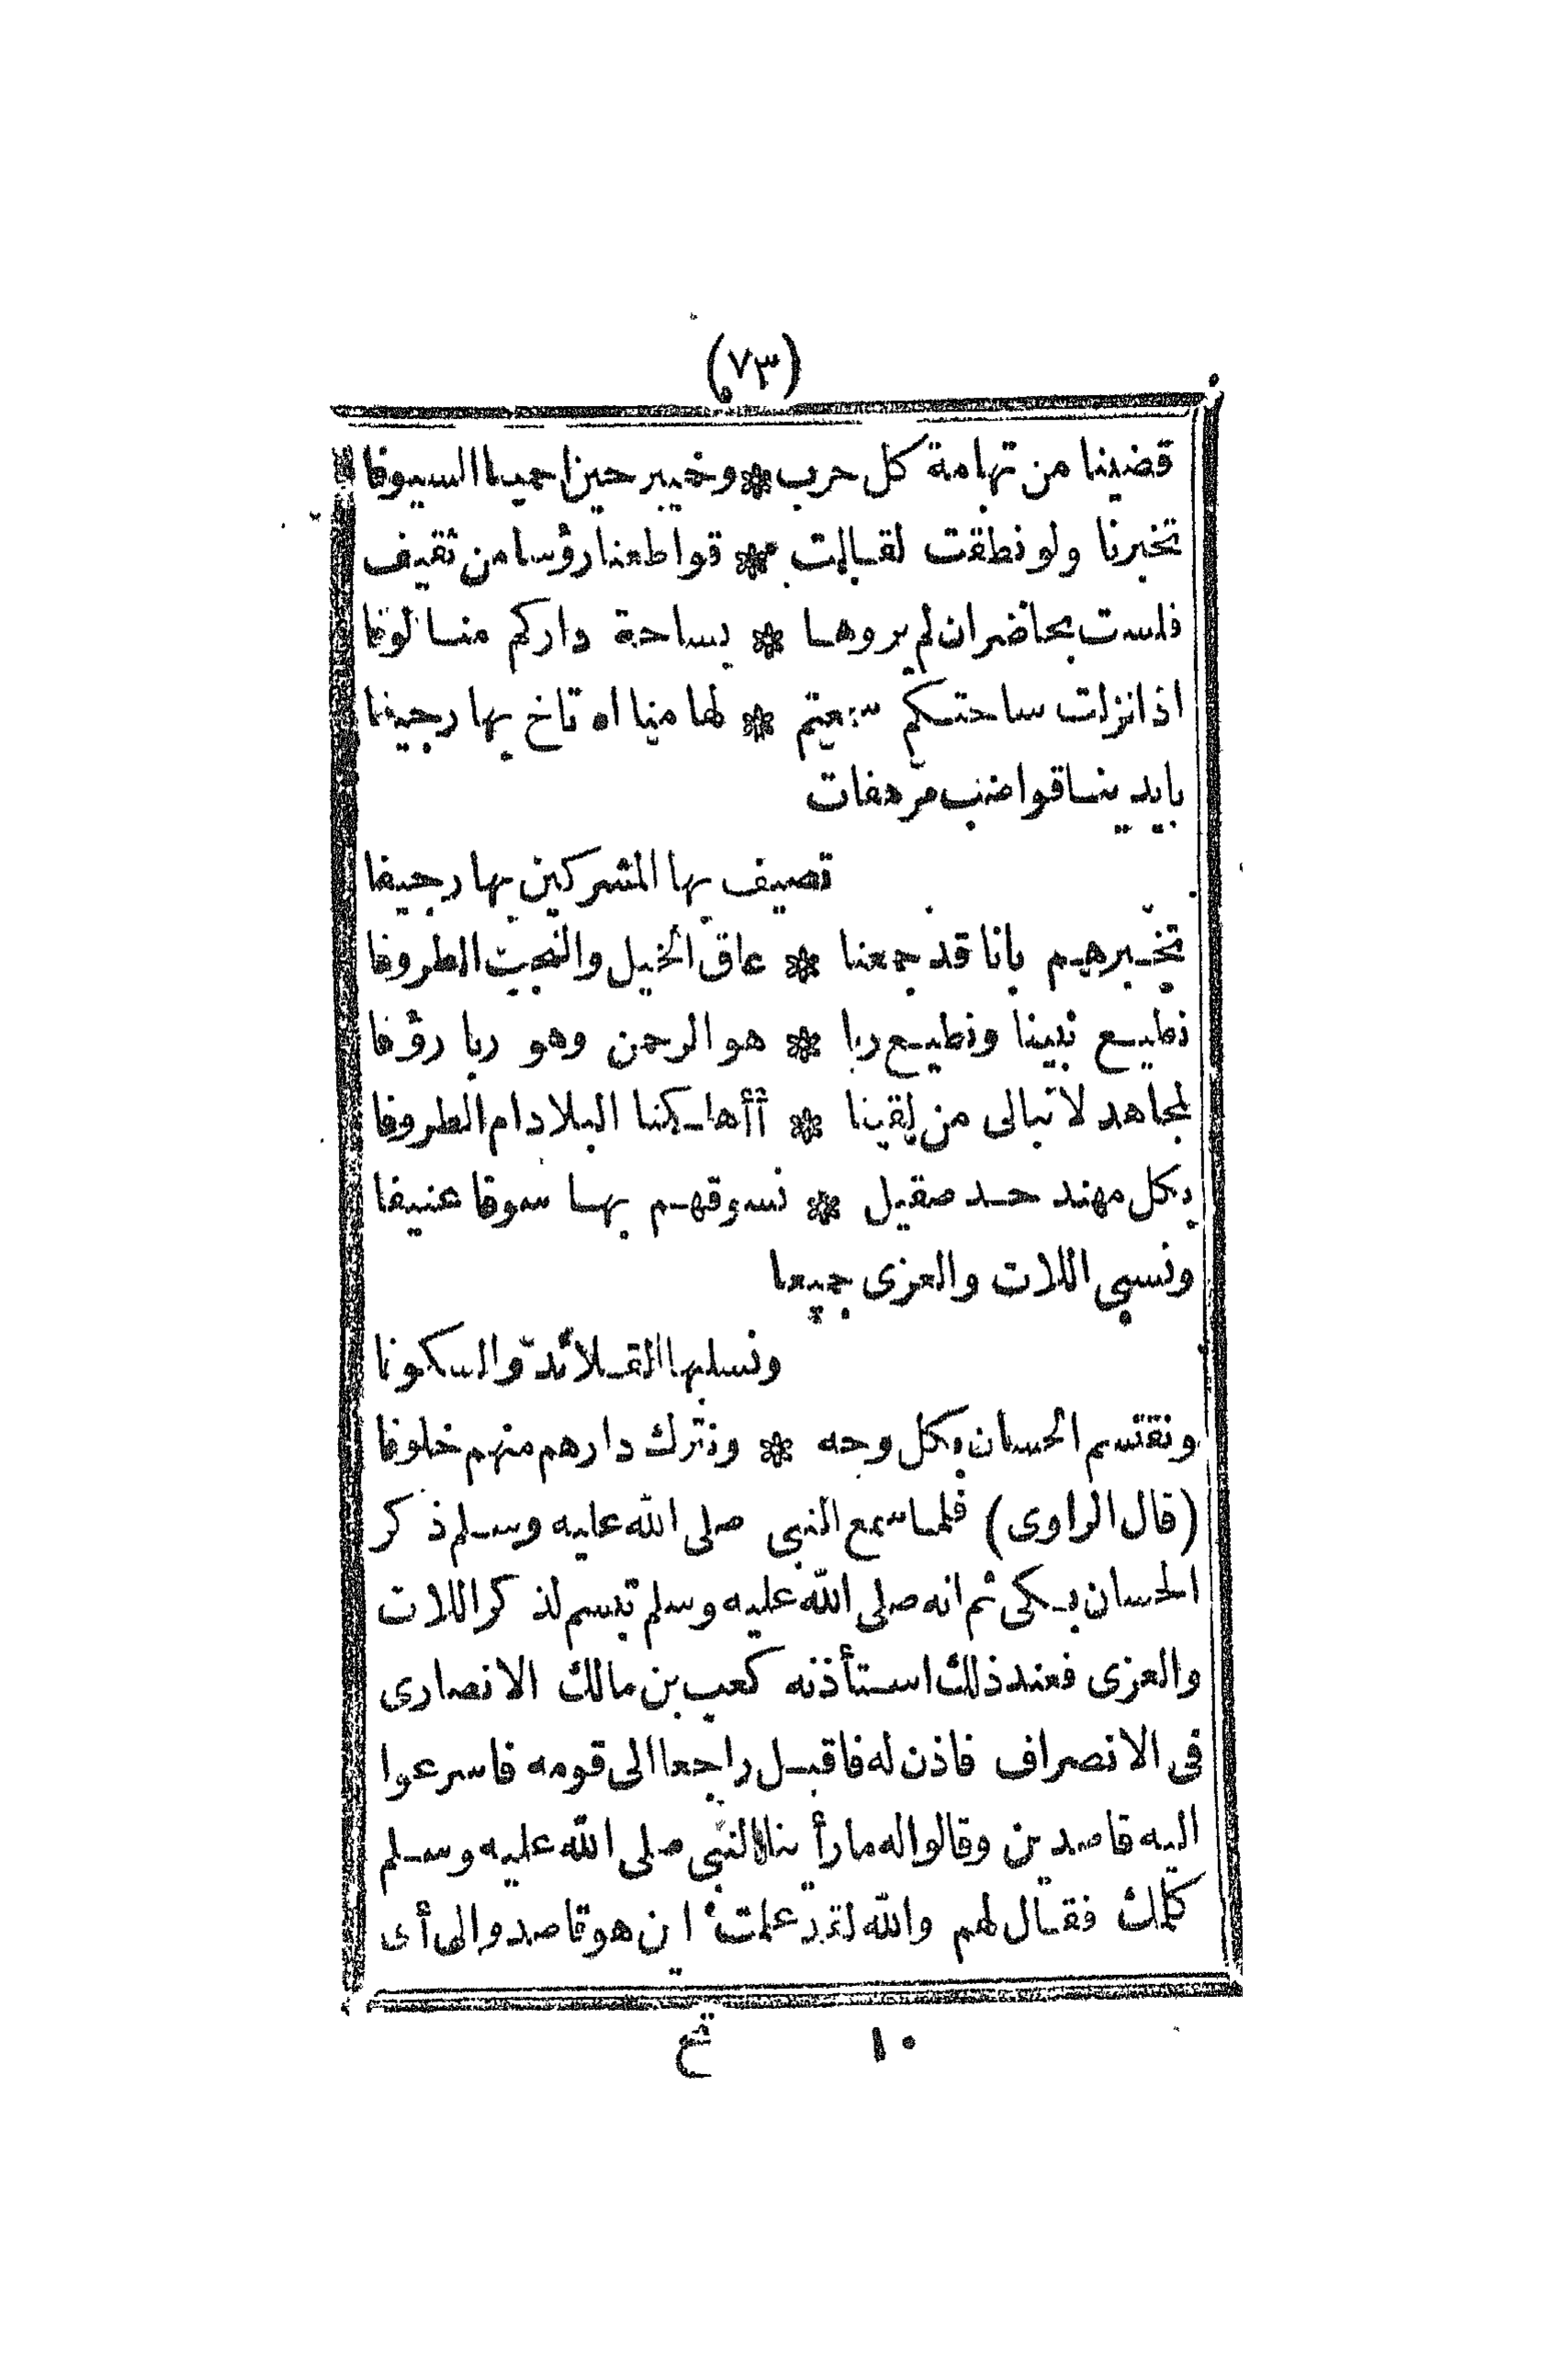 (٧٣)
قضينا من تهامة كل حرب * وخيبر حين احمينا السيوفا
تخبرنا ولو نطقت لقالت * قواطعنا رؤسا من ثقيف
فلست بحاضر ان لم يروها * بساحة داركم منا لوفا
اذا نزلت ساحتكم سمعتم * لها منا اه تاخ بها رجيفا
بايدينا قواضب مرهفات
تصيف بها المشركين بها رجيفا
تخبرهم بانا قد جمعنا * عاق الخيل والنجيب الطروفا
نطيع نبينا ونطيع ربا * هو الرحمن وهو ربا رؤفا
لمجاهد لا نبالى من لقينا * أأهلكنا البلاد ام الطروفا
بكل مهند حد صقيل * نسوقهم بها سوقا عنيفا
ونسبى اللات والعزى جميعا
ونسلبها القلائد والسكوفا
ونقتسم الحسان بكل وجه * ونترك دارهم منهم خلوفا
(قال الراوى) فلما سمع النبى صلى الله عليه وسلم ذكر
الحسان بكى ثم انه صلى الله عليه وسلم تبسم لذكر اللات
والعزى فعند ذلك استأذنه كعب بن مالك الانصارى
فى الانصراف فاذن له فاقبل راجعا الى قومه فاسرعوا
اليه قاصدين وقالوا له ما رأينا النبى صلى الله عليه وسلم
كلمك فقال لهم والله لقد علمت اين هو قاصد والى أى
١٠ فتح